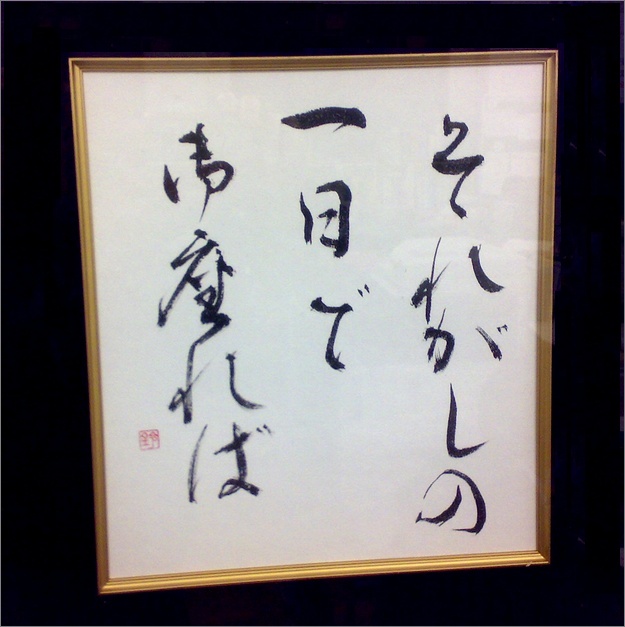 それがしの
一日で
御座れば